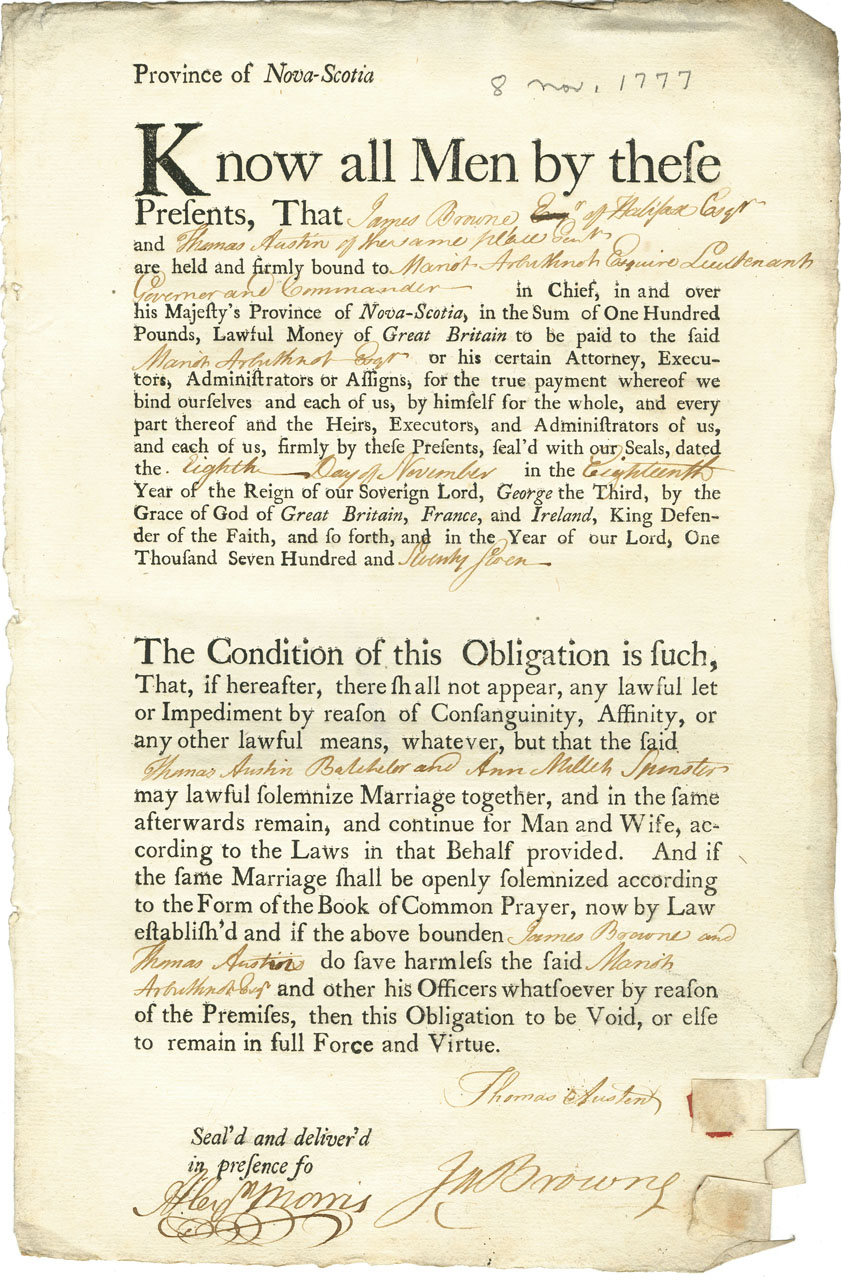 Province of Nova-Scotia
8 Nov. 1777
Know all Men by theſe
Preſents, That James Browne of Halifax Esqr
and Thomas Austin of the same place Gent
are held and firmly bound to Mariot Arbuthnot Esquire Lieutenant
Governor and Commander in Chief, in and over
his Majeſty's Province of Nova-Scotia, in the Sum of One Hundred
Pounds, Lawful Money of Great Britain to be paid to the ſaid
Mariot Arbuthnot Esqr or his certain Attorney, Execu-
tors, Adminiſtrators or Aſſigns, for the true payment whereof we
bind ourſelves and each of us, by himſelf for the whole, and every
part thereof and the Heirs, Executors, and Adminiſtrators of us,
and each of us, firmly by theſe Preſents, ſeal'd with our Seals, dated
the Eighth Day of November in the Eighteenth
Year of the Reign of our Soverign Lord, George the Third, by the
Grace of God of Great Britain, France, and Ireland, King Defen-
der of the Faith, and ſo forth, and in the Year of our Lord, One
Thouſand Seven Hundred and Seventy Seven
The Condition of this Obligation is ſuch,
That, if hereafter, there ſhall not appear, any lawful let
or Impediment by reaſon of Conſanguinity, Affinity, or
any other lawful means, whatever, but that the ſaid
Thomas Austin Batchelor and Ann Millet Spinster
may lawful ſolemnize Marriage together, and in the ſame
afterwards remain, and continue for Man and Wife, ac-
cording to the Laws in that Behalf provided. And if
the ſame Marriage ſhall be openly ſolemnized according
to the Form of the Book of Common Prayer, now by Law
eſtabliſh'd and if the above bounden James Browne and
Thomas Austin do ſave harmleſs the ſaid Mariot
Arbuthnot Esqr and other his Officers whatſoever by reaſon
of the Premiſes, then this Obligation to be Void, or elſe
to remain in full Force and Virtue.
Thomas Austen
Seal'd and deliver'd
in preſence fo
Morris
Js Browne